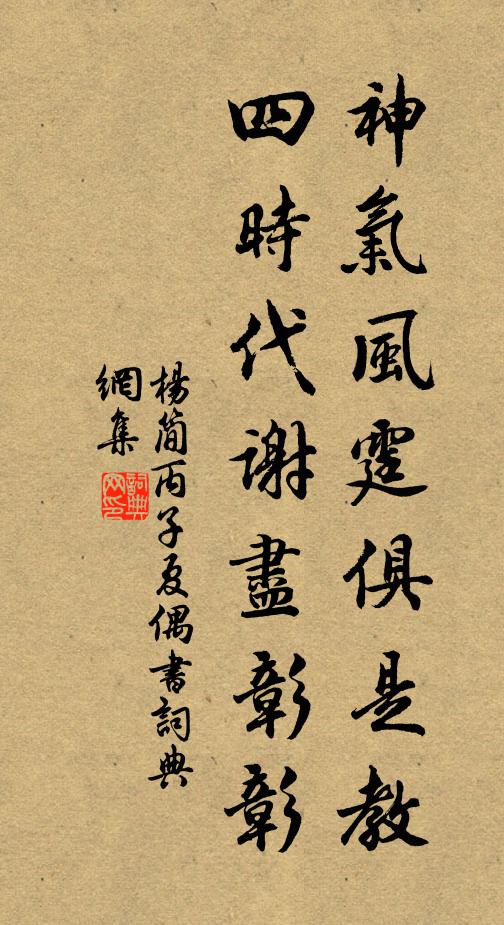 神氣風霆俱是教
四時代謝盡彰彰
楊簡丙子夏偶書詞典
網集
詞典
网印